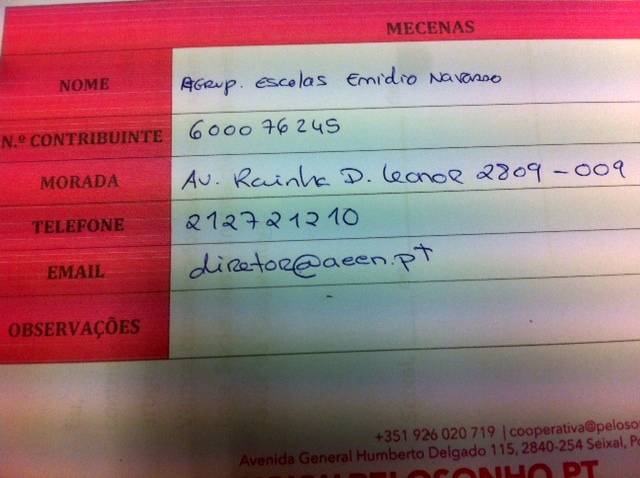 MECENAS
NOME Agrup. Escolas Emídio Navarro
N.º CONTRIBUINTE 600076245
MORADA Av. Rainha D. Leonor 2809-009
TELEFONE 212721210
EMAIL diretor@aeen.pt
OBSERVAÇÕES
+351 926 020 719 | cooperativa@peloso
Avenida General Humberto Delgado 115, 2840-254 Seixal, Po
PELOSONHO.PT